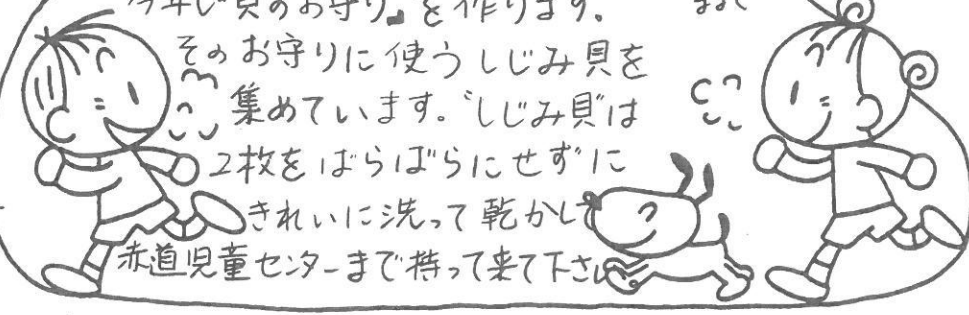 貝のお守り』を作ります。
そのお守りに使うしじみ貝を
集めています。“しじみ貝”は
2枚をばらばらにせずに
きれいに洗って乾かして
赤道児童センターまで持って来て下さい